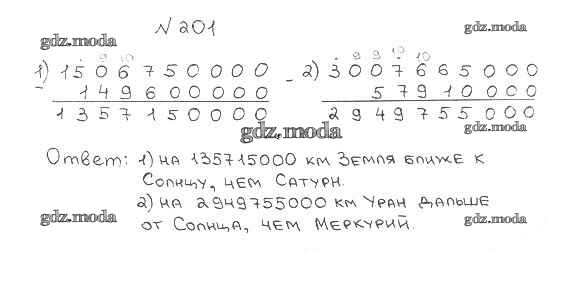 N 201
gdz.moda
gdz.moda
. 9 10
. 9 9 10 10
1) 1506750000
- 149600000
1357150000
- 2) 3007665000
57910000
2949755000
gdz.moda
gdz.moda
Ответ: 1) на 135715000 км Земля ближе к
Солнцу, чем Сатурн.
2) на 2949755000 км Уран дальше
от Солнца, чем Меркурий.
gdz.moda
gdz.moda